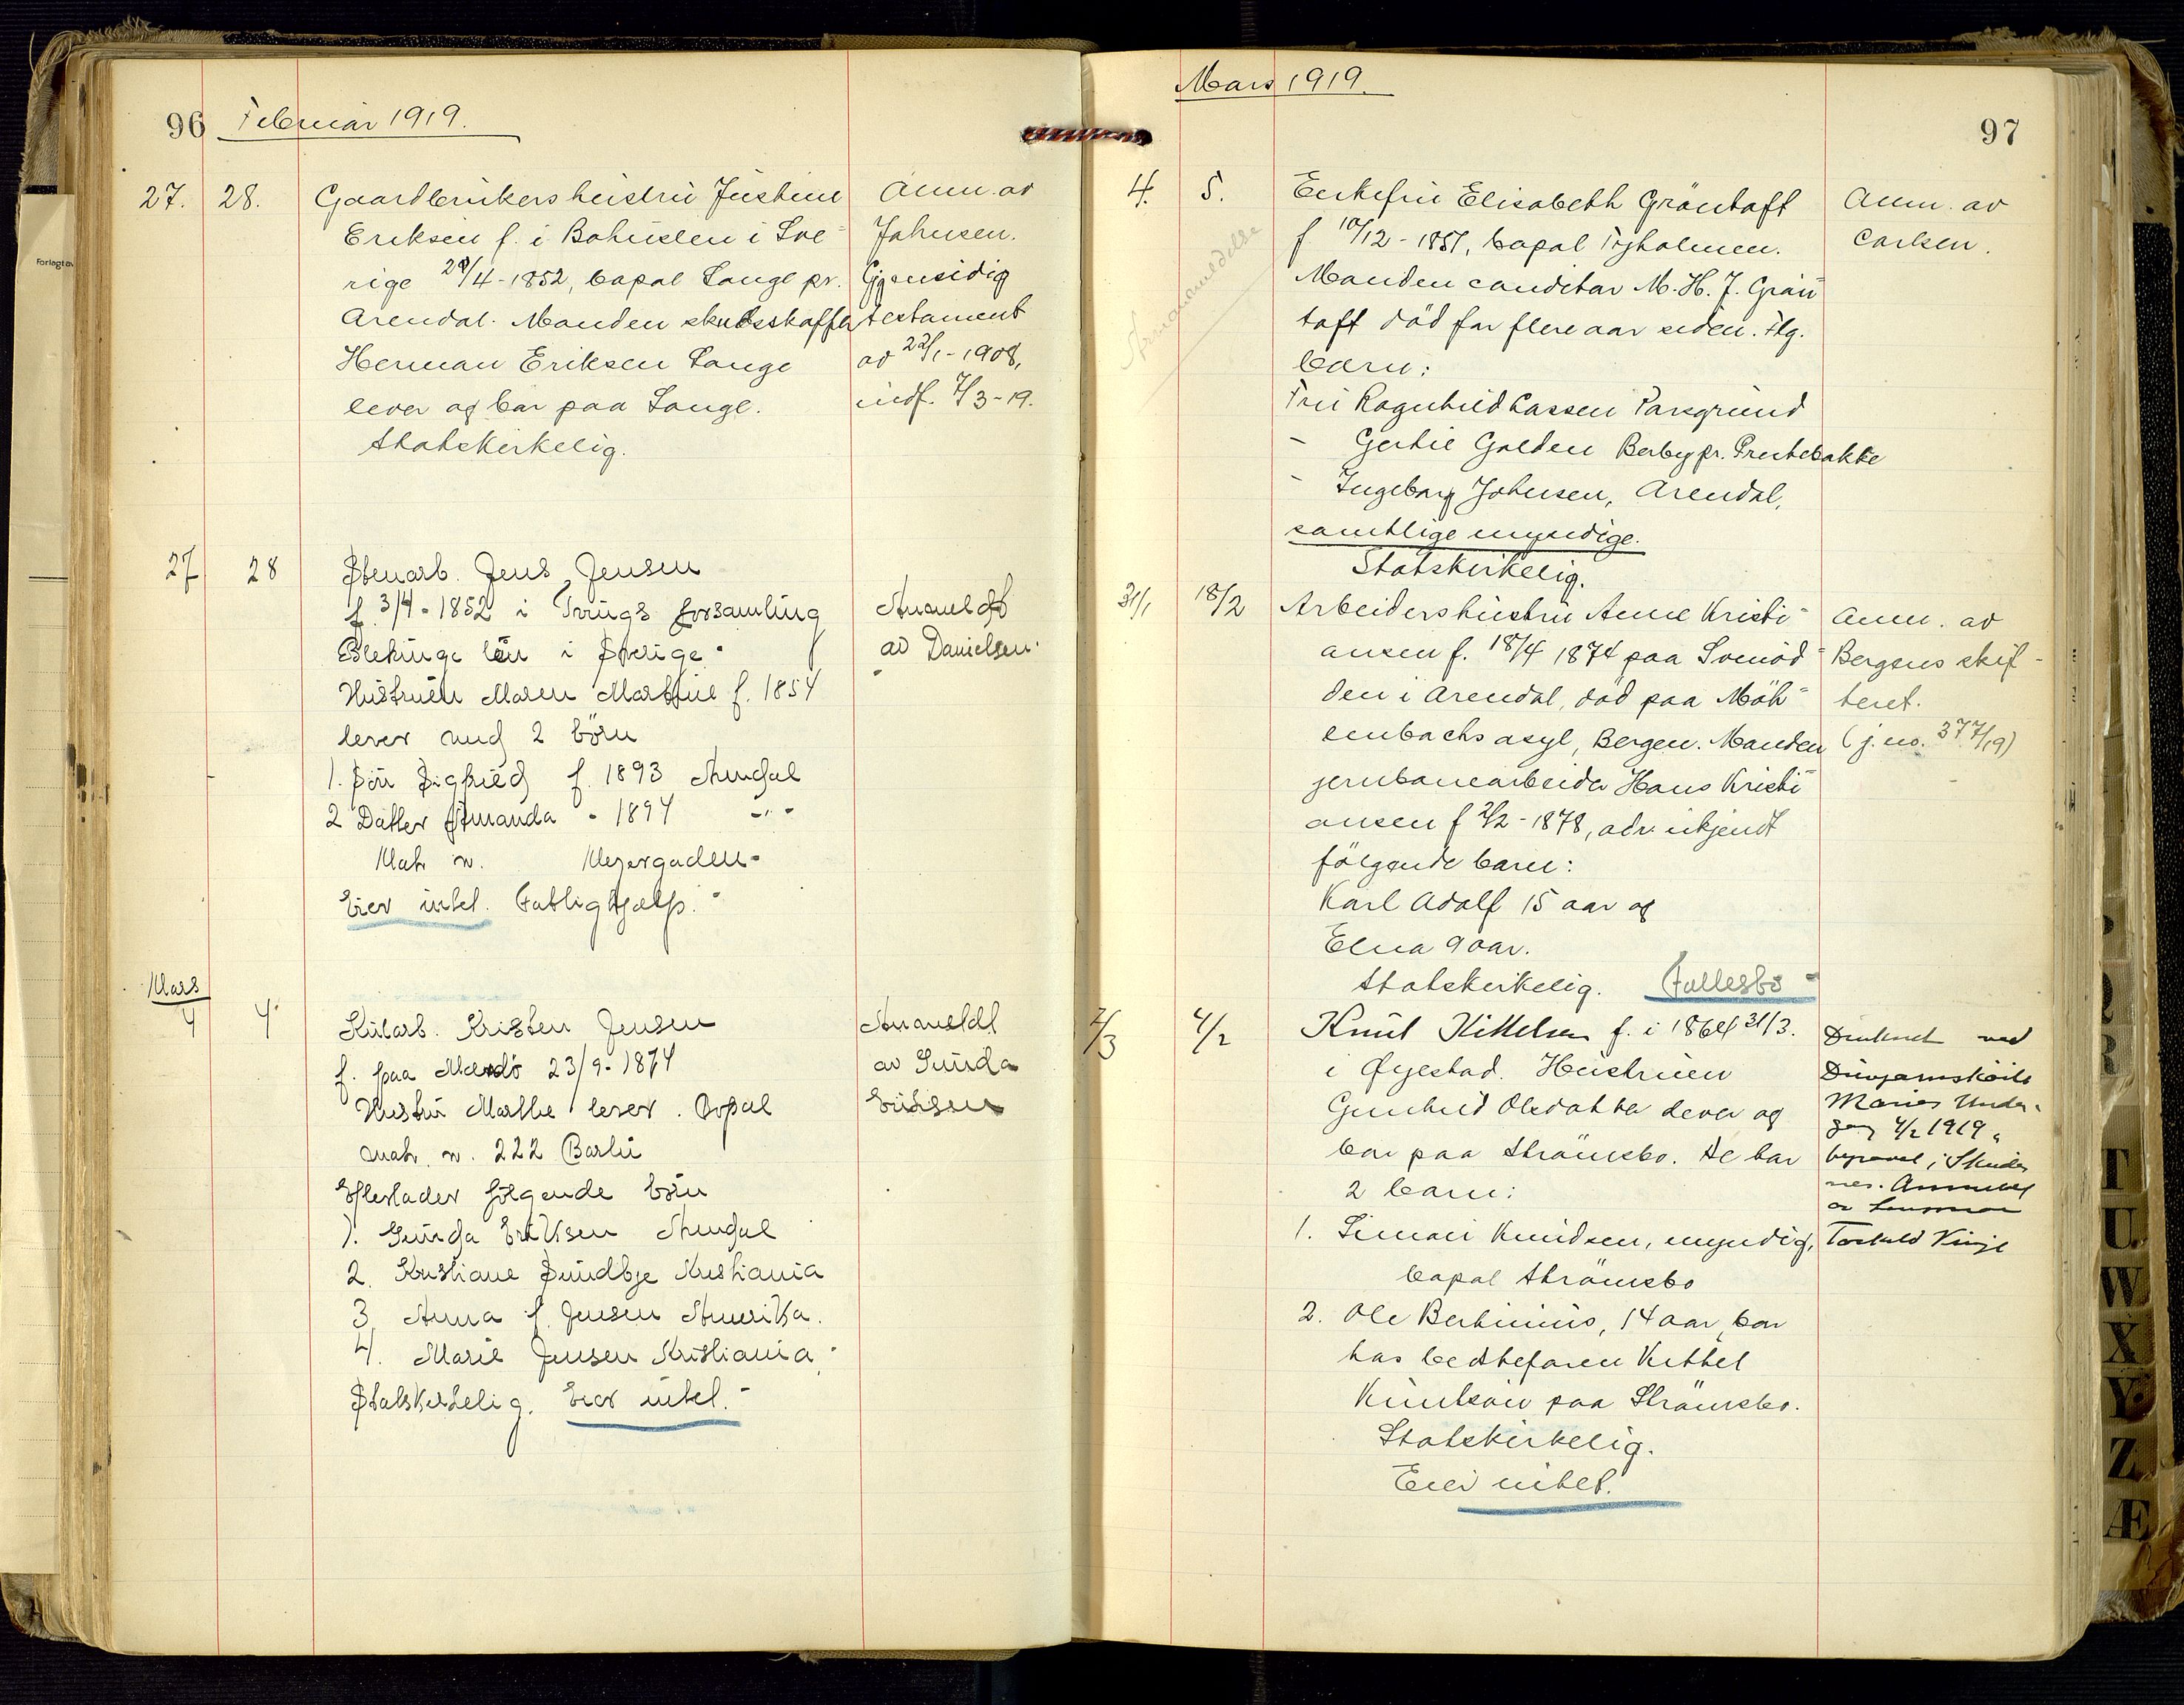 96 Februar 1919.
27. 28. Gaardbrukershustru Justine
Eriksen f. i Bohuslen i Sve=
rige 29/4-1852, bopæl Songe pr.
Arendal. Manden skudsskaffer
Herman Eriksen Songe
lever og bor paa Songe.
Statskirkelig.
Anm. av
Johnsen.
Gjensidig
testament
av 22/1-1908,
indf. 7/3-19.
27 28 Stenarb. Jens Jensen
f. 3/4-1852 i Tvings forsamling
Blekinge län i Sverige.
Hustruen Maren Martine f. 1854
lever med 2 børn
1. Søn Sigfried f. 1893 Arendal
2 Datter Amanda - 1894 -"-
Matr nr. Meyergaden.
Eier intet. Fattighjælp.
Anmeldt
av Danielsen.
Mars
4 4. Kularb. Kristen Jensen
f. paa Mærdø 23/9-1874
Hustru Marthe lever. Bopæl
matr. nr. 222 Barbu
Efterlader følgende børn
1. Gunda Eriksen Arendal
2. Kristiane Sundbye Kristiania
3 Anna f. Jensen Amerika.
4. Marie Jensen Kristiania.
Statskirkelig. Eier intet.
Anmeldt
av Gunda
Eriksen
Mars 1919.
97
4. 5. Enkefru Elisabeth Gröntoft
f 10/12-1851, bopæl Tyholmen.
Manden conditor M. H. J. Grön=
toft död for flere aar siden. Flg.
barn:
Fru Ragnhild Lassen Porsgrund
- Gertie Golden Berby pr. Prestebakke
- Ingeborg Johnsen, Arendal,
samtlige myndige.
Statskirkelig.
Anm. av
Carlsen.
31/1 18/2 Arbeidershustru Anne Kristi=
ansen f. 18/4 1874 paa Svenöd=
den i Arendal, död paa Möh=
lenbachs asyl, Bergen. Manden
jernbanearbeider Hans Kristi=
ansen f 2/2-1878, adr. ukjendt
fölgende barn:
Karl Adolf 15 aar og
Elna 9 aar.
Statskirkelig. Fællesbo
Anm. av
Bergens skif-
teret.
(j. no. 377/19)
7/3 4/2 Knut Kittelsen f. i 1864 31/3.
i Øyestad. Hustruen
Gunhild Olsdatter lever og
bor paa Strömsbo. De har
2 barn:
1. Simon Knudsen, myndig,
bopæl Strömsbo
2. Ole Bertinius, 14 aar, bor
hos bedstefaren Kittel
Knutson paa Strömsbo.
Statskirkelig.
Eier intet.
Druknet ved
Maries Under-
gang 4/2 1919.
begravet i Skudes
nes. Anmeldt
av Lensmann